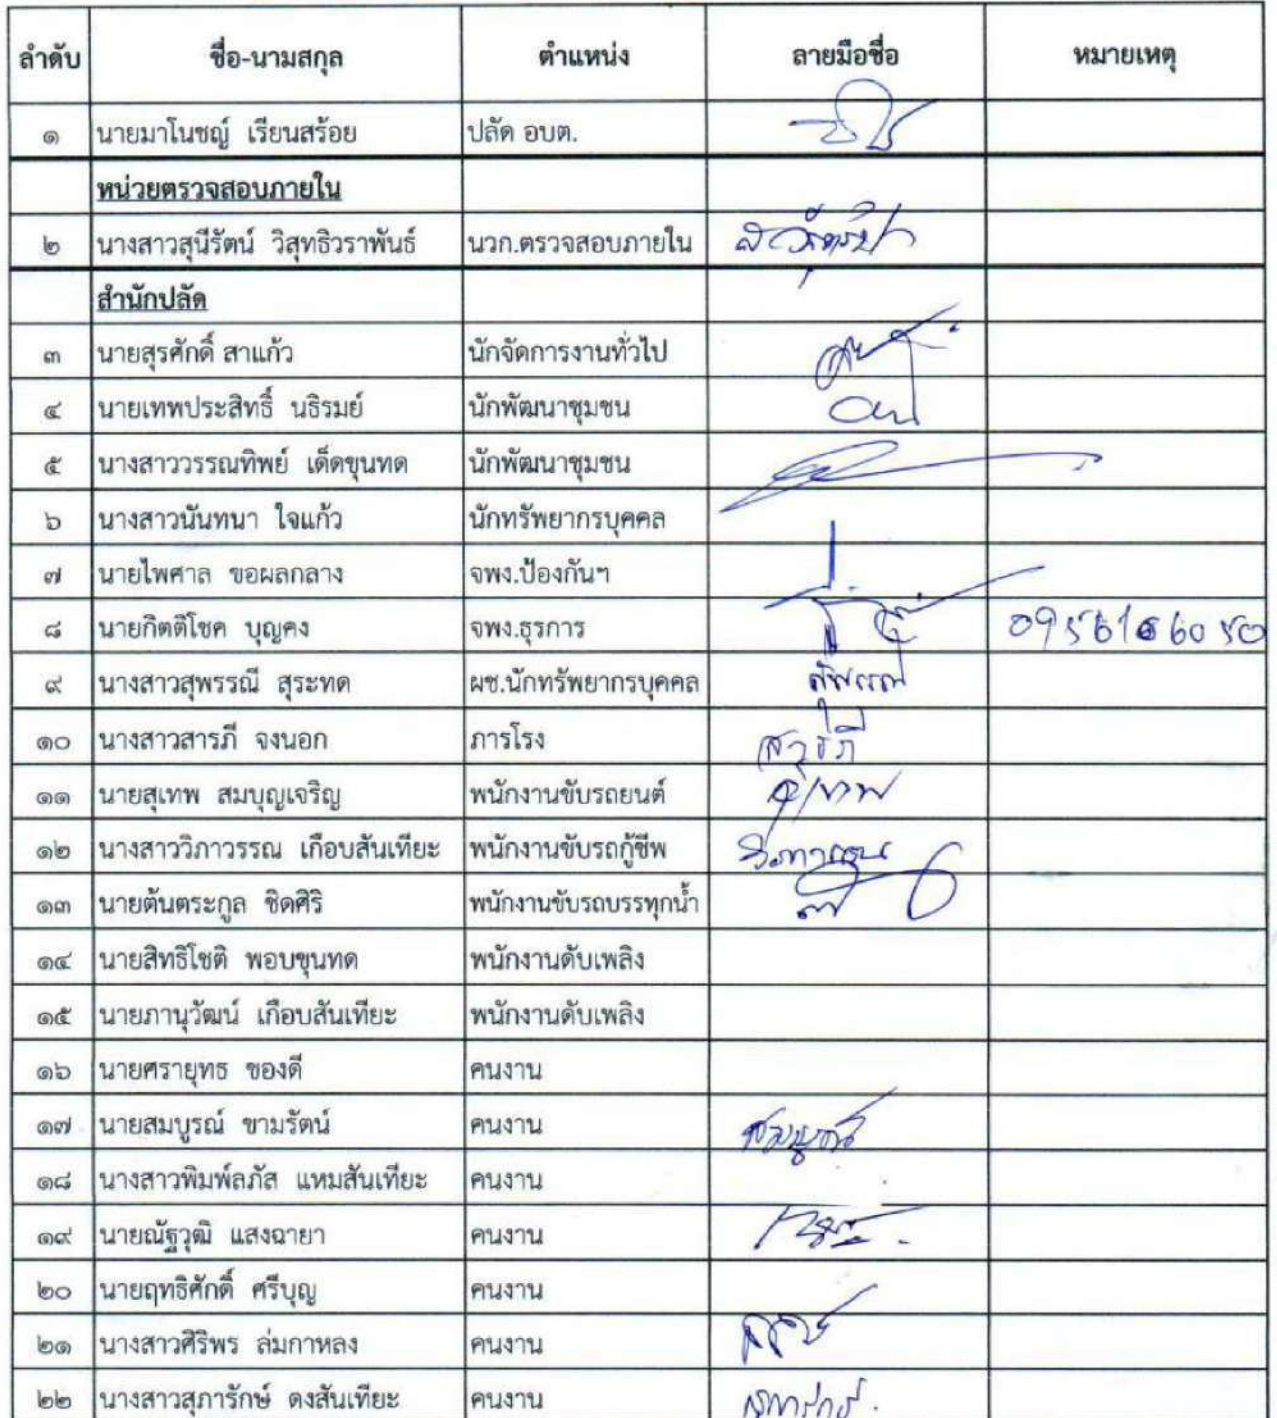 ลำดับ ชื่อ-นามสกุล ตำแหน่ง ลายมือชื่อ หมายเหตุ
๑ นายมาโนชญ์ เรียนสร้อย ปลัด อบต.
หน่วยตรวจสอบภายใน
๒ นางสาวสุนีรัตน์ วิสุทธิวราพันธ์ นวก.ตรวจสอบภายใน
สำนักปลัด
๓ นายสุรศักดิ์ สาแก้ว นักจัดการงานทั่วไป
๔ นายเทพประสิทธิ์ นธิรมย์ นักพัฒนาชุมชน
๕ นางสาววรรณทิพย์ เด็ดขุนทด นักพัฒนาชุมชน
๖ นางสาวนันทนา ใจแก้ว นักทรัพยากรบุคคล
๗ นายไพศาล ขอผลกลาง จพง.ป้องกันฯ
๘ นายกิตติโชค บุญคง จพง.ธุรการ
๙ นางสาวสุพรรณี สุระทด ผช.นักทรัพยากรบุคคล สุพรรณี
๑๐ นางสาวสารภี จงนอก ภารโรง สารภี
๑๑ นายสุเทพ สมบุญเจริญ พนักงานขับรถยนต์ สุเทพ
๑๒ นางสาววิภาวรรณ เกือบสันเทียะ พนักงานขับรถกู้ชีพ วิภาวรรณ
๑๓ นายต้นตระกูล ชิดศิริ พนักงานขับรถบรรทุกน้ำ
๑๔ นายสิทธิโชติ พอบขุนทด พนักงานดับเพลิง
๑๕ นายภานุวัฒน์ เกือบสันเทียะ พนักงานดับเพลิง
๑๖ นายศรายุทธ ของดี คนงาน
๑๗ นายสมบูรณ์ ขามรัตน์ คนงาน สมบูรณ์
๑๘ นางสาวพิมพ์ลภัส แหมสันเทียะ คนงาน
๑๙ นายณัฐวุฒิ แสงฉายา คนงาน
๒๐ นายฤทธิศักดิ์ ศรีบุญ คนงาน
๒๑ นางสาวศิริพร ล่มกาหลง คนงาน
๒๒ นางสาวสุภารักษ์ ดงสันเทียะ คนงาน สุภารักษ์